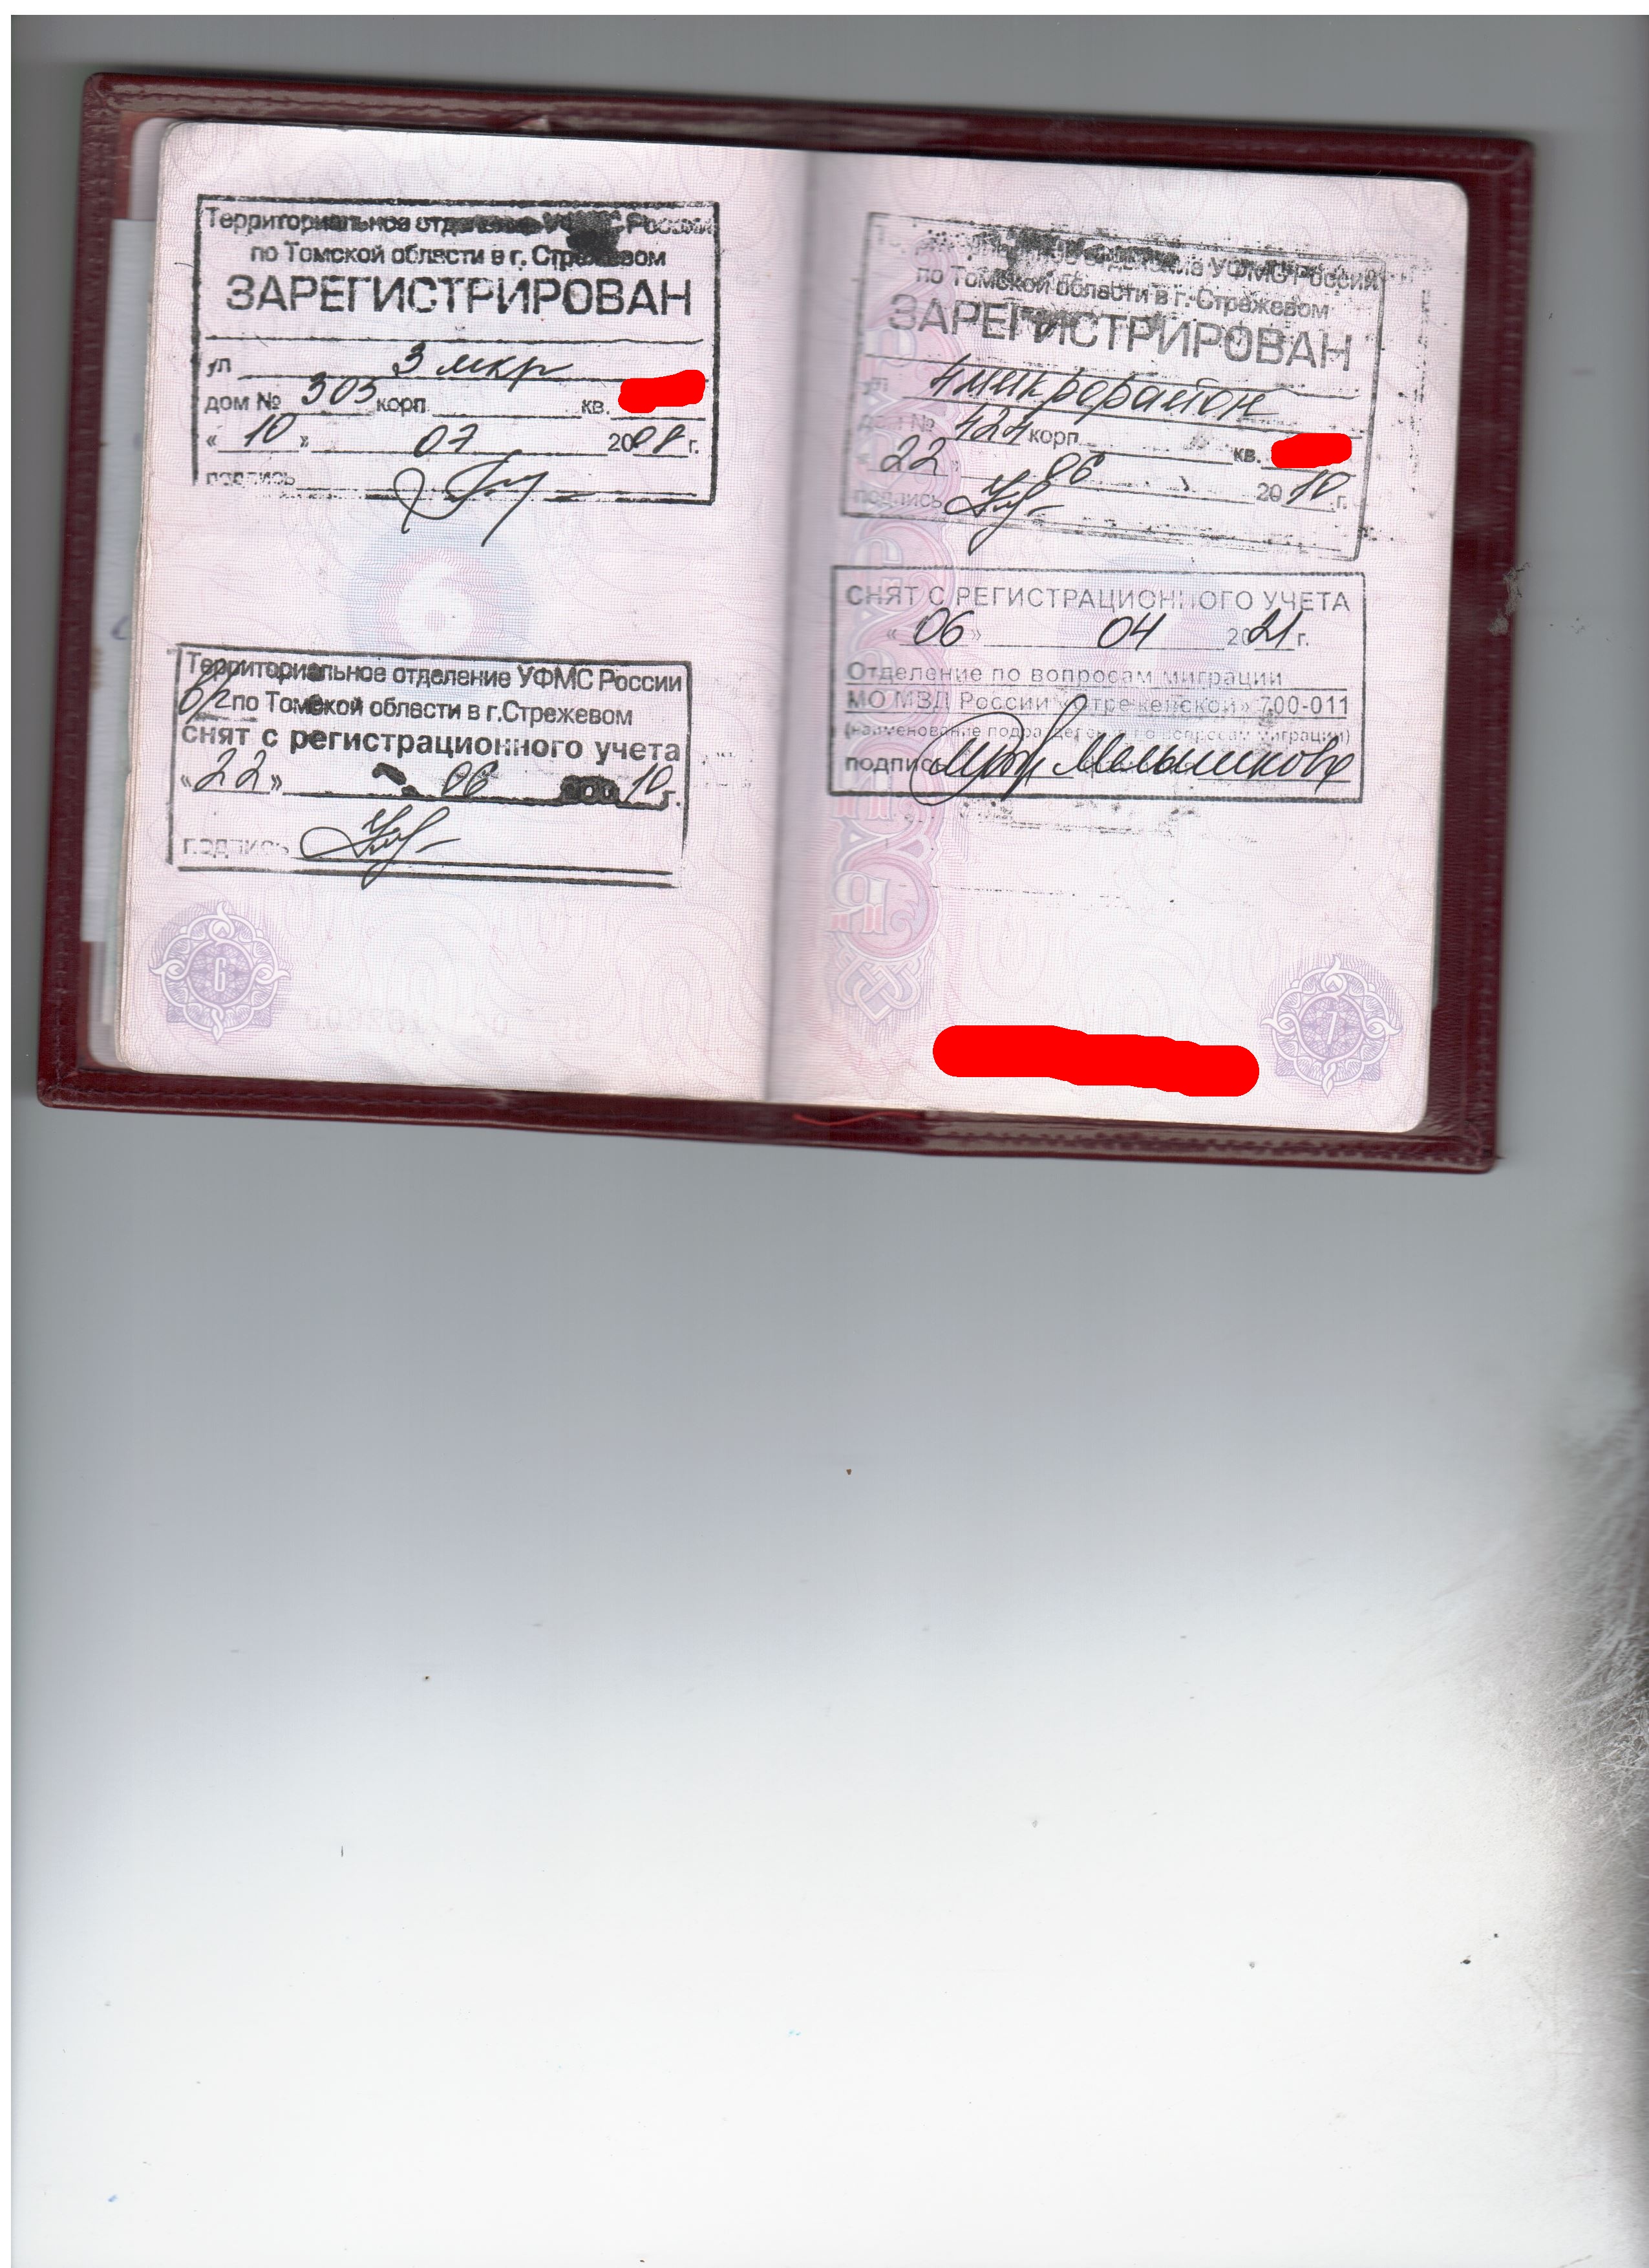 Территориальное отделение УФМС России
по Томской области в г. Стрежевом
ЗАРЕГИСТРИРОВАН
ул 3 мкр
дом № 303 корп кв.
« 10 » 07 2008 г.
подпись
Территориальное отделение УФМС России
по Томской области в г.Стрежевом
снят с регистрационного учета
« 22 » 06 10 г.
подпись
6
Территориальное отделение УФМС России
по Томской области в г. Стрежевом
ЗАРЕГИСТРИРОВАН
ул 4 микрорайон
дом № 424 корп кв.
« 22 » 06 20 10 г.
подпись
СНЯТ С РЕГИСТРАЦИОННОГО УЧЕТА
« 06 » 04 2021 г.
Отделение по вопросам миграции
МО МВД России «Стрежевской» 700-011
(наименование подразделения по вопросам миграции)
подпись Мельникова
7